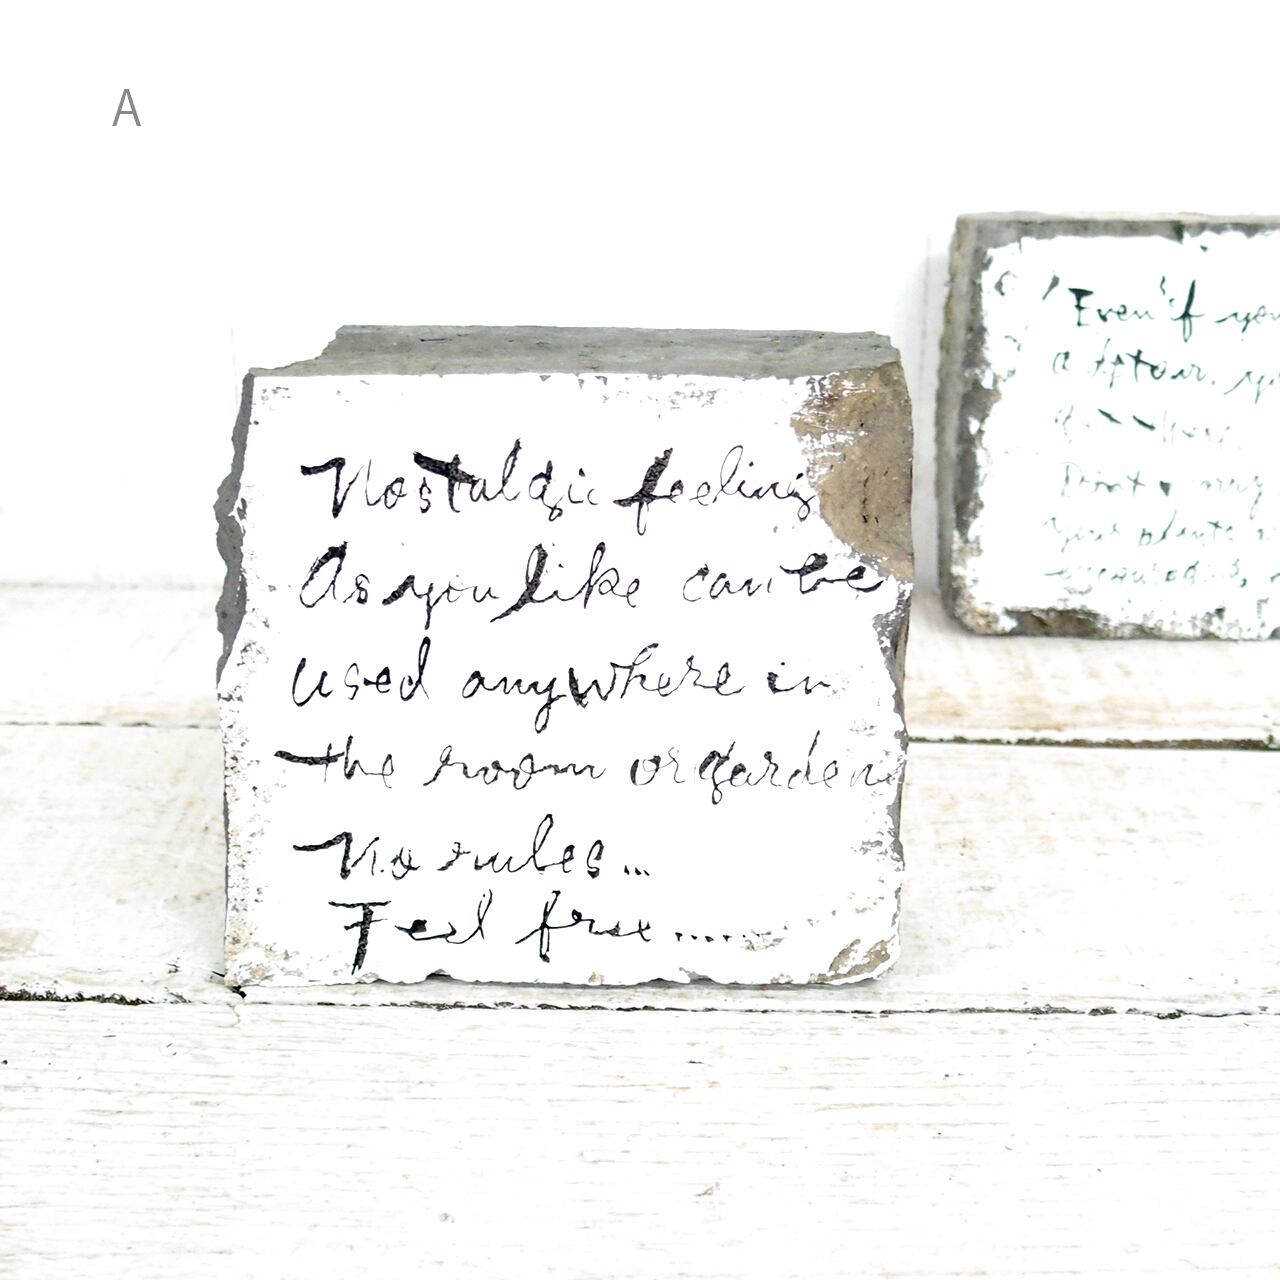 A
Nostalgic feeling
As you like can be
used anywhere in
the room or garden
No rules...
Feel free.....
Even if you
a
Don't
your plants